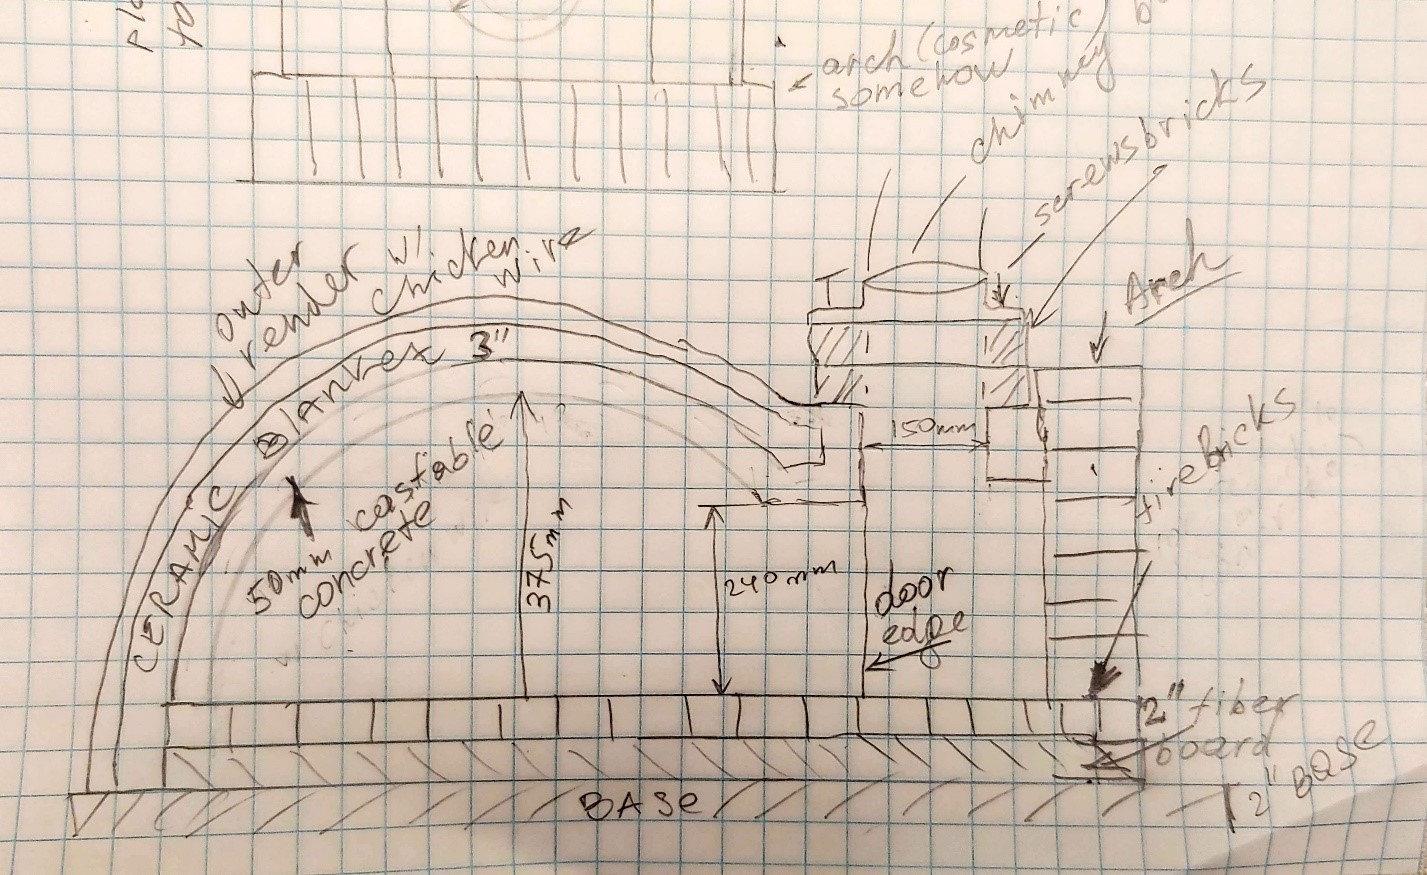 to
arch (cosmetic)
somehow
chimney
screws
bricks
Arch
outer
render w/
chicken
wire
CERAMIC BlANKET 3"
50mm castable
concrete
375mm
240mm
150mm
door
edge
firebricks
2" fiber
board
BASe
2" BASe